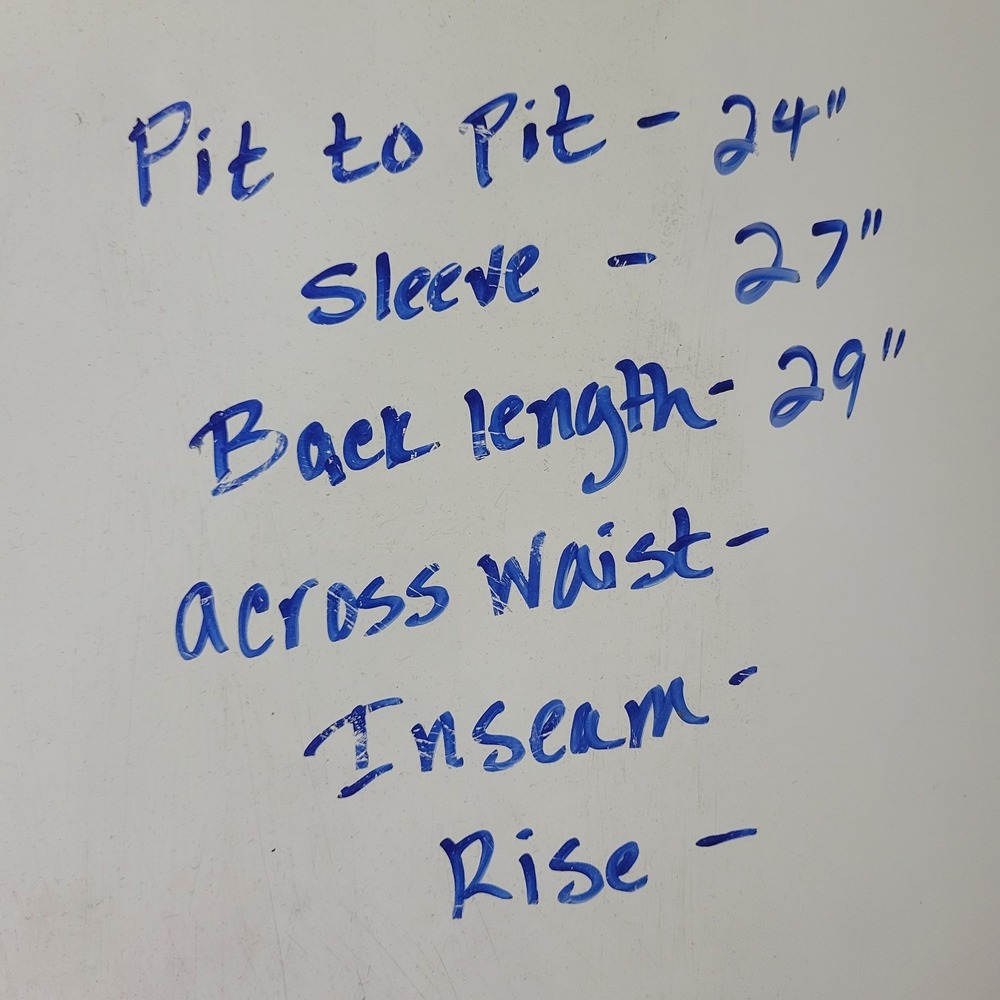 Pit to Pit - 24"
Sleeve - 27"
Back length - 29"
across waist -
Inseam -
Rise -